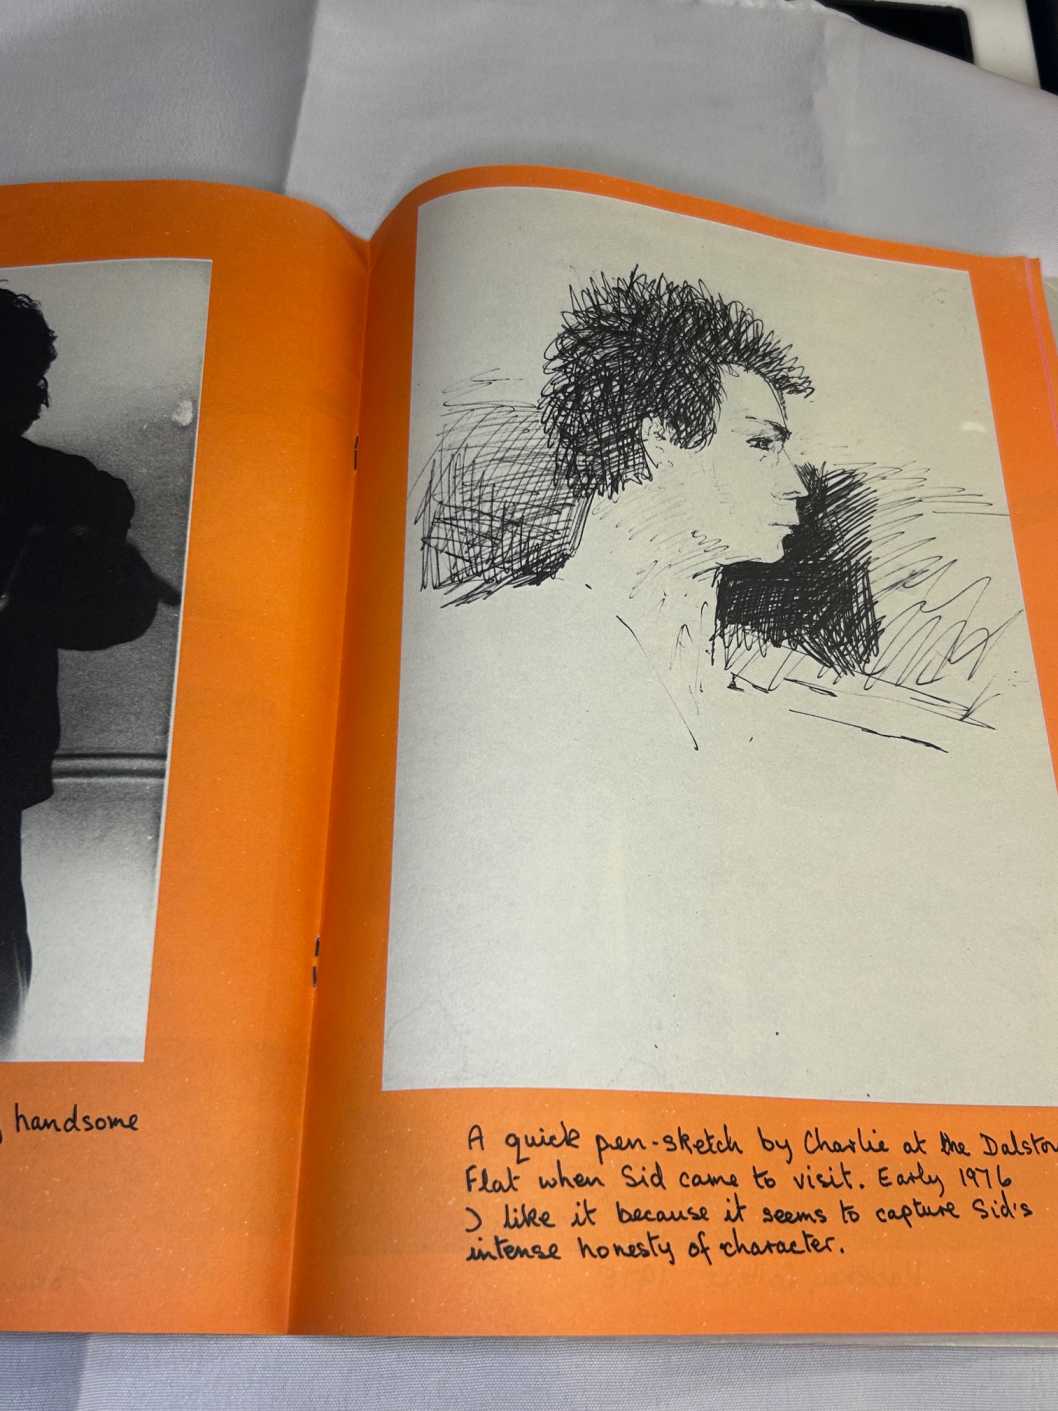 handsome
A quick pen-sketch by Charlie at the Dalston
Flat when Sid came to visit. Early 1976
I like it because it seems to capture Sid's
intense honesty of character.